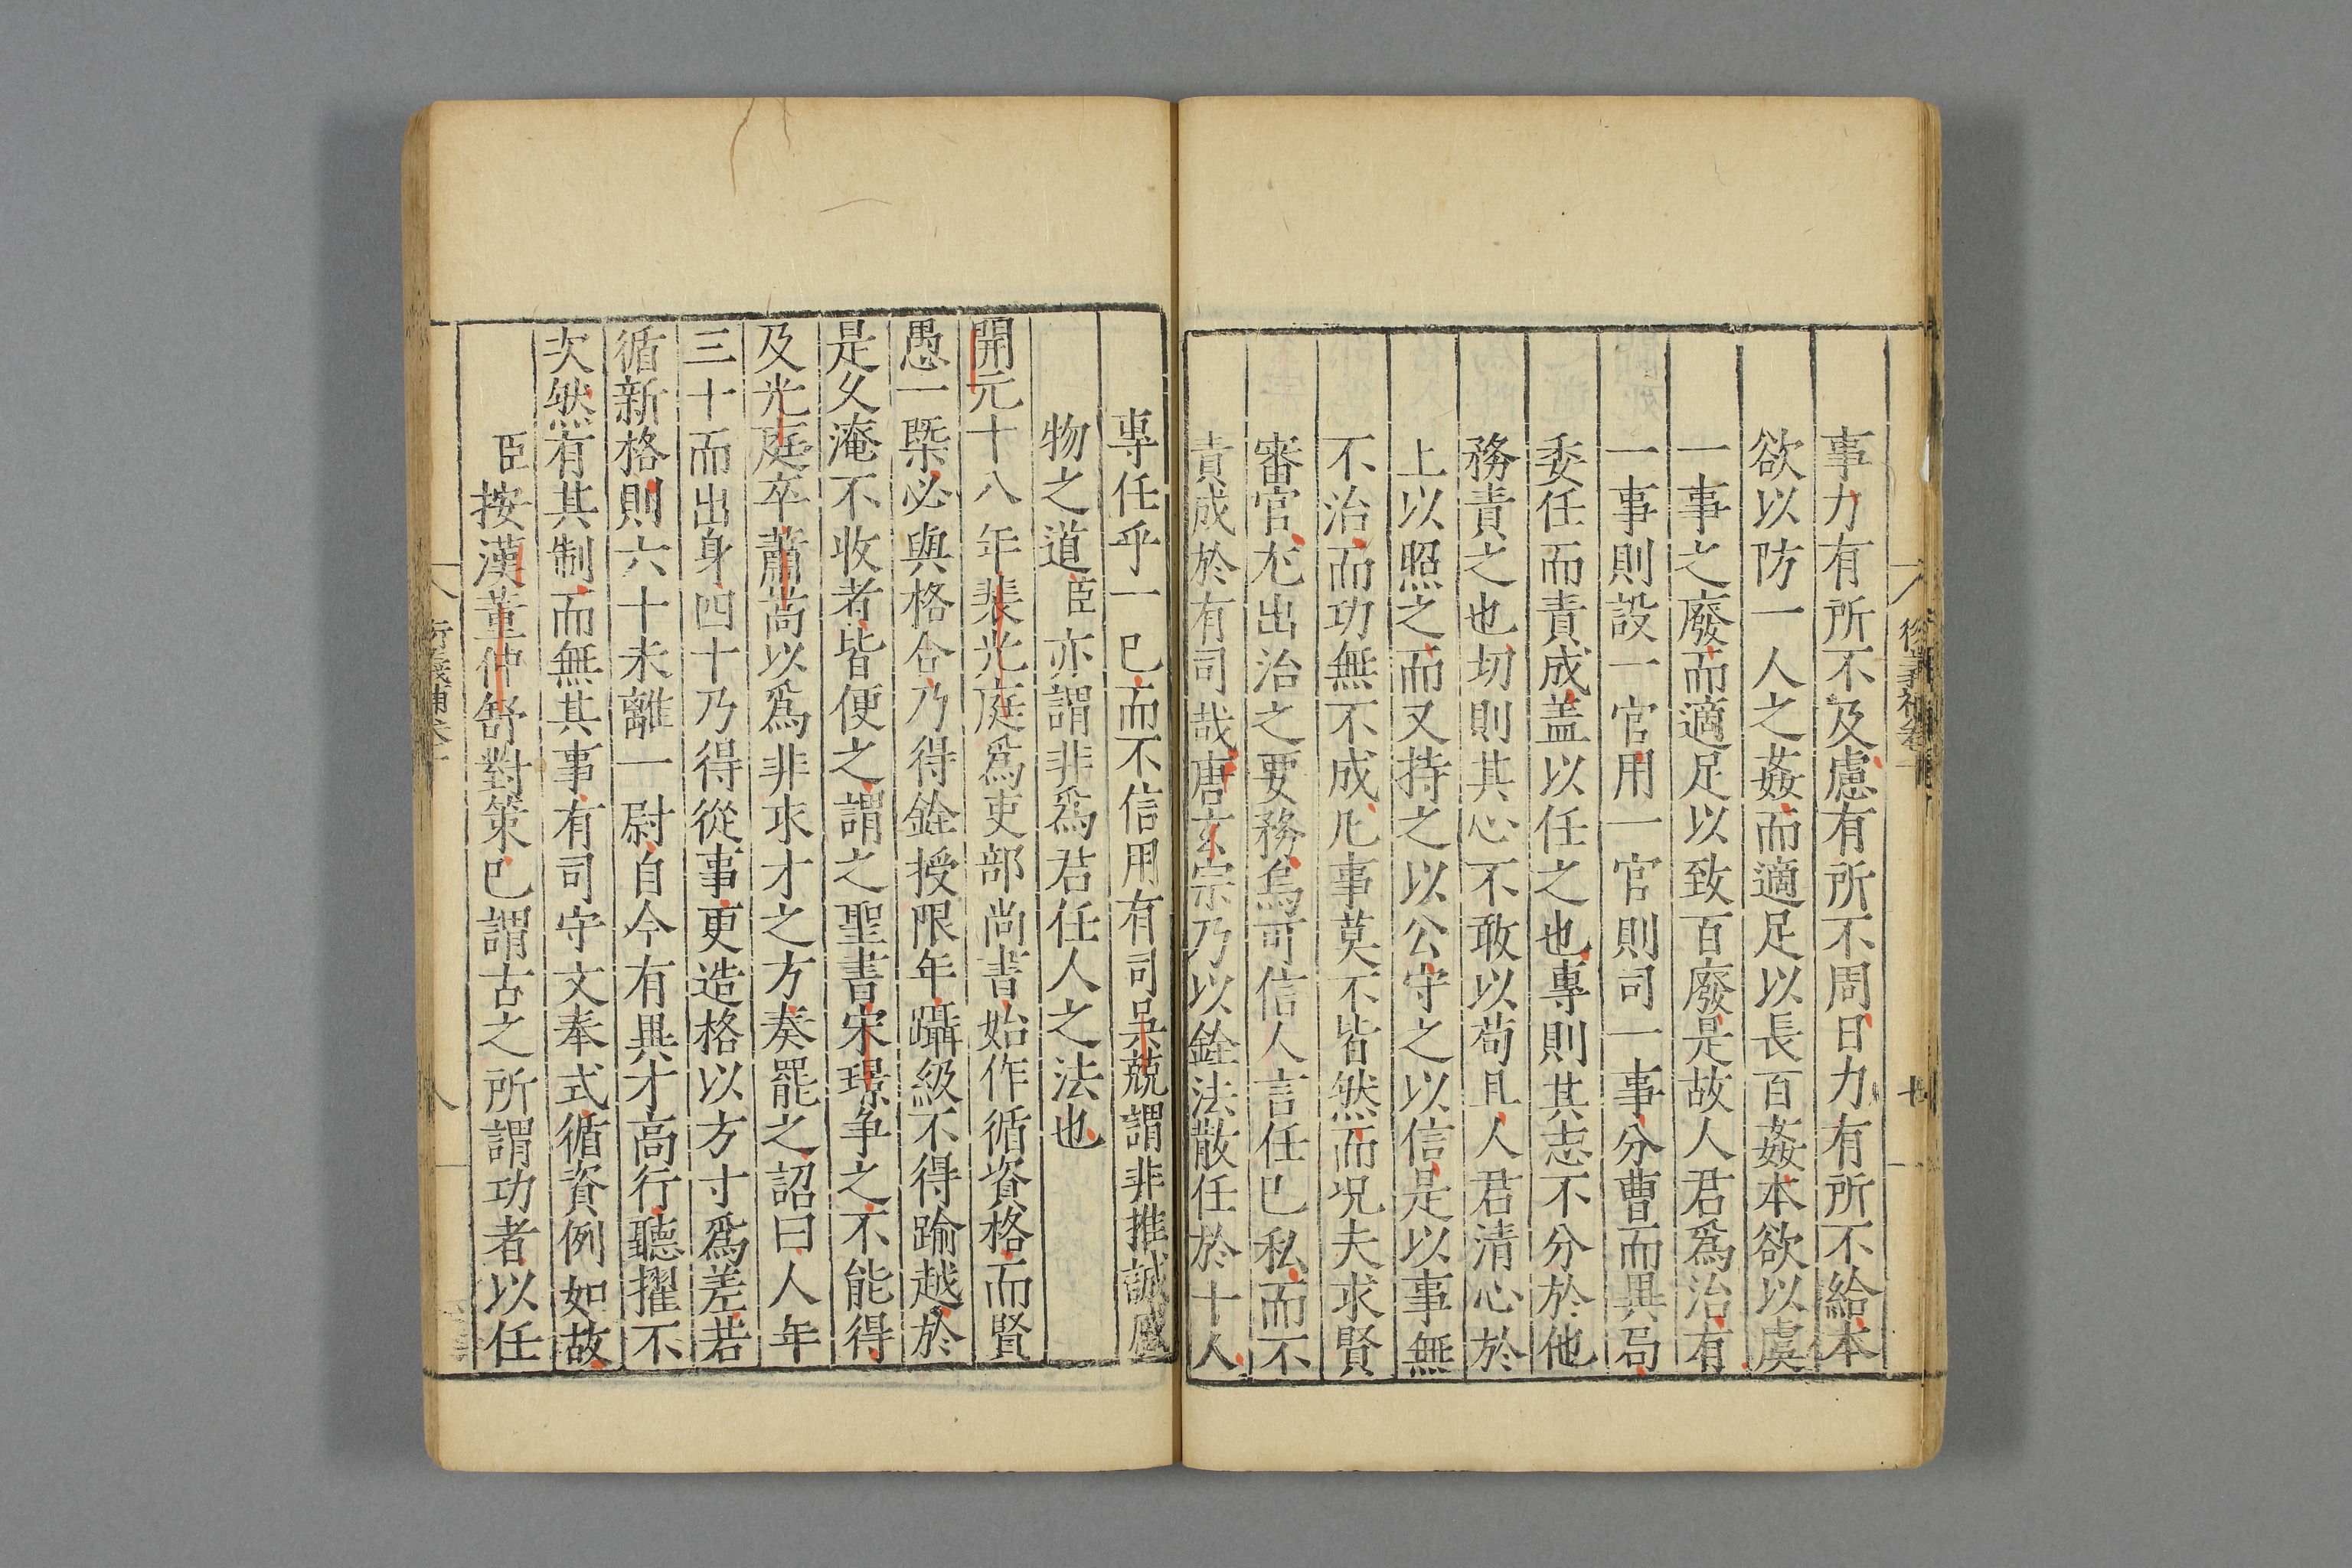 事力有所不及慮有所不周日力有所不給本
欲以防一人之姦而適足以長百姦本欲以虞
一事之廢而適足以致百廢是故人君爲治有
一事則設一官用一官則司一事分曹而異局
委任而責成盖以任之也專則其志不分於他
務責之也切則其心不敢以苟且人君清心於
上以照之而又持之以公守之以信是以事無
不治而功無不成凡事莫不皆然而况夫求賢
審官尤出治之要務烏可信人言任己私而不
責成於有司哉唐玄宗乃以銓法散任於十人
專任乎一已而不信用有司吳兢謂非推誠感
物之道臣亦謂非爲君任人之法也
開元十八年裴光庭爲吏部尚書始作循資格而賢
愚一槩必與格合乃得銓授限年躡級不得踰越於
是乆淹不收者皆便之謂之聖書宋璟争之不能得
及光庭卒蕭嵩以爲非求才之方奏罷之詔曰人年
三十而出身四十乃得從事更造格以方寸爲差若
循新格則六十未離一尉自今有異才高行聽擢不
次然有其制而無其事有司守文奉式循資例如故
臣按漢董仲舒對策已謂古之所謂功者以任